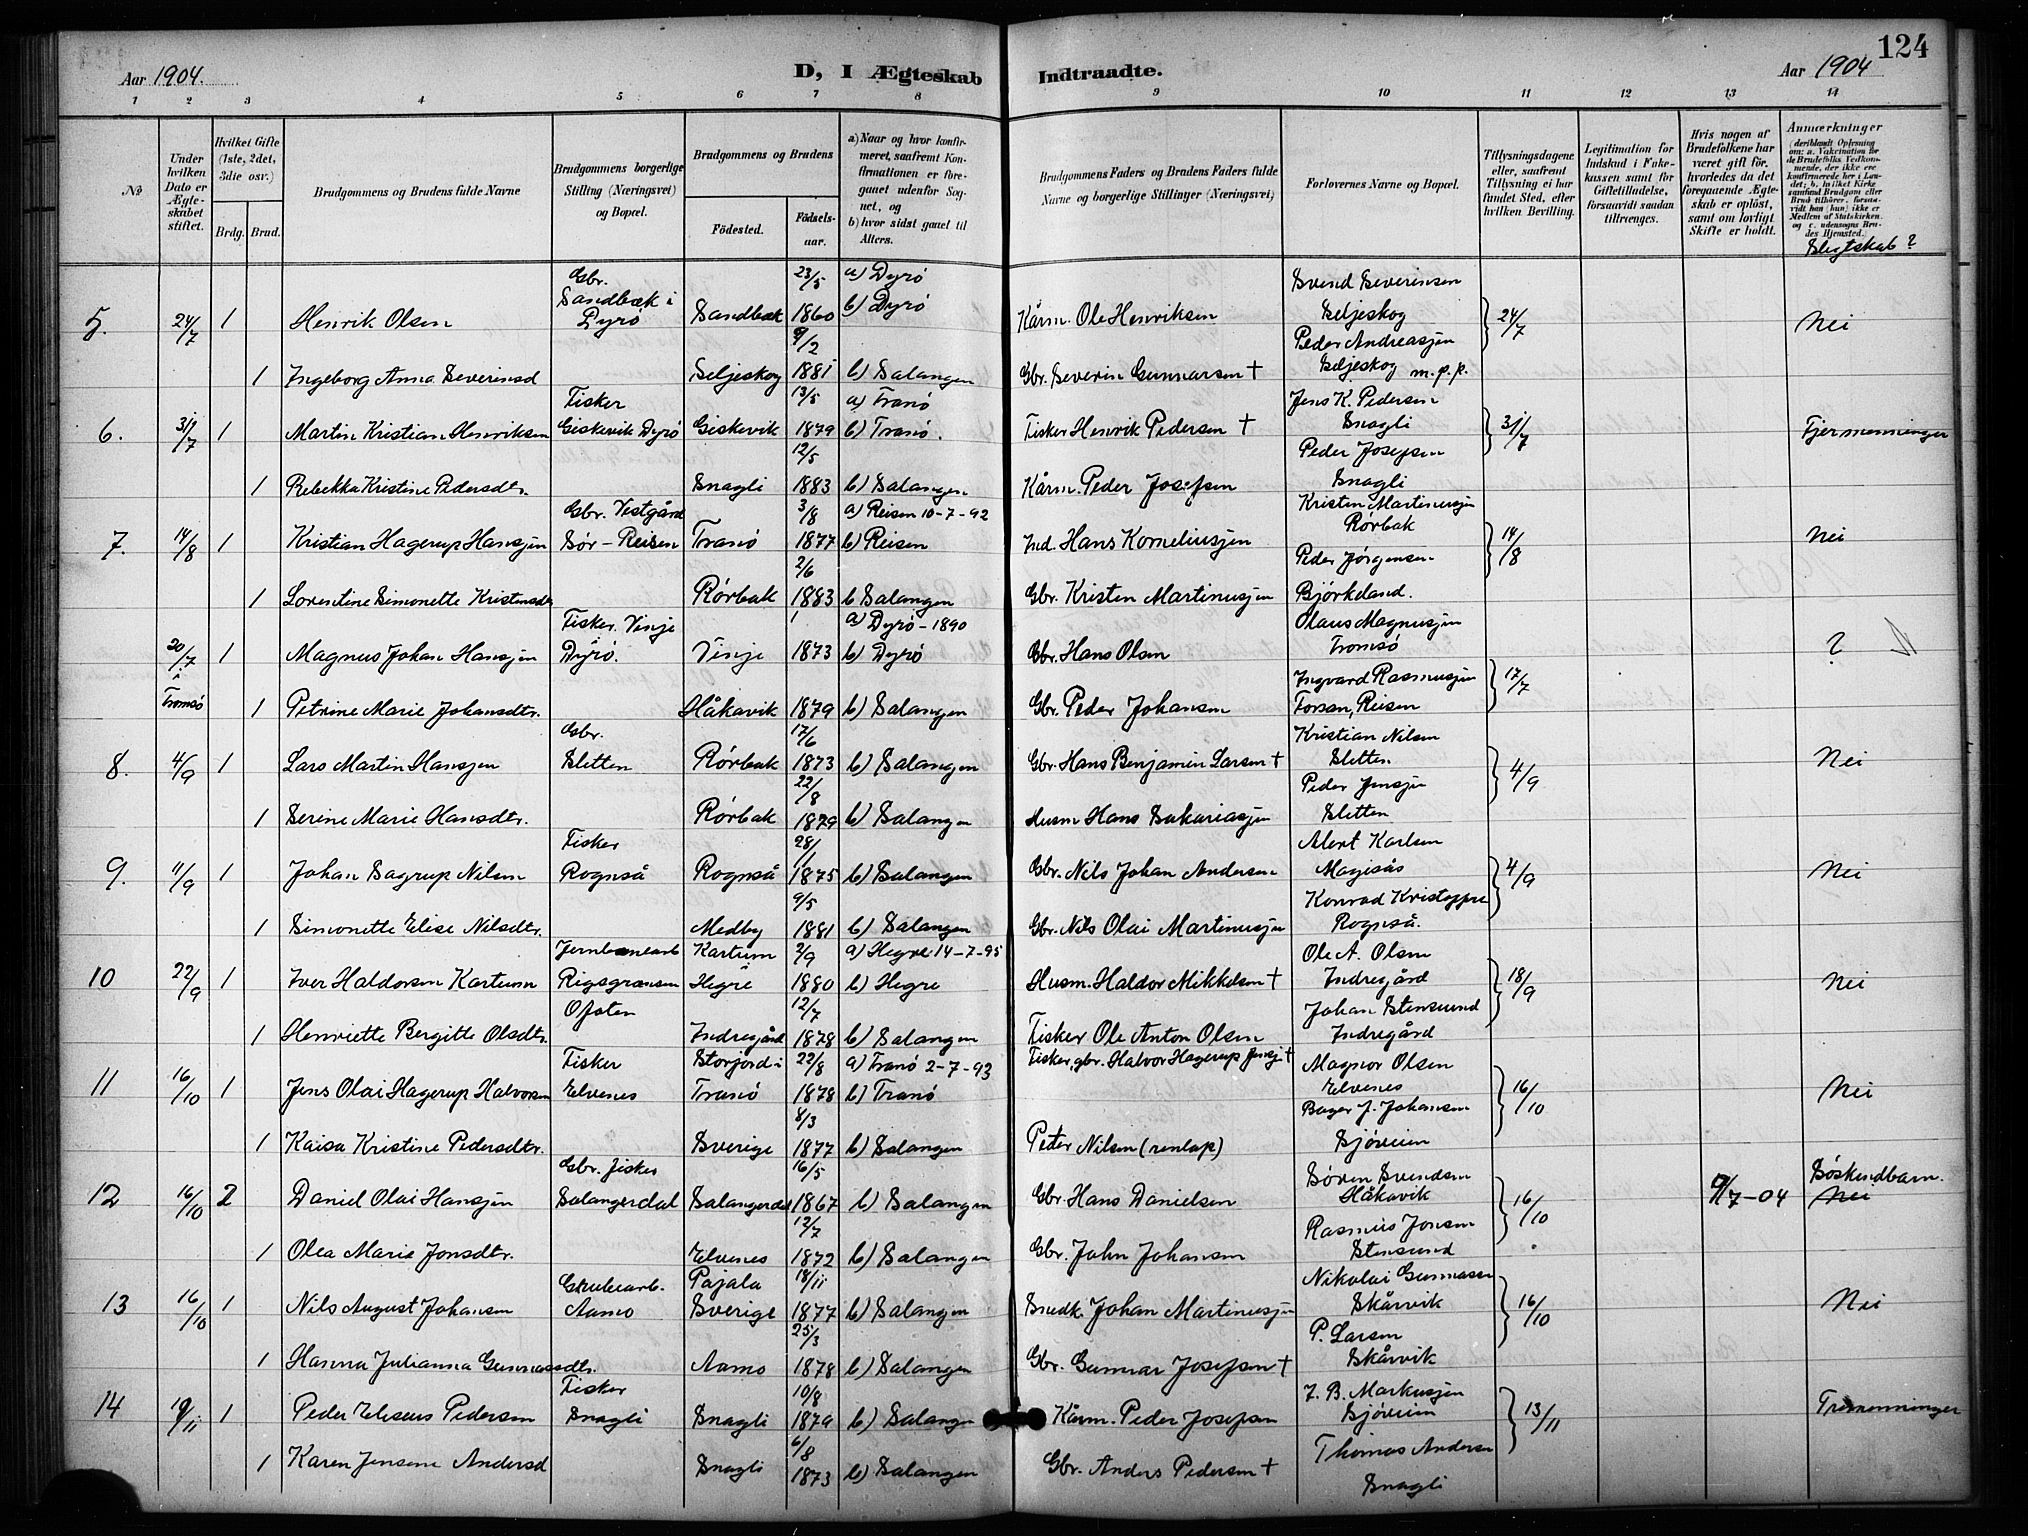 124
Aar 1904. D, I Ægteskab Indtraadte. Aar 1904
1 2 3 4 5 6 7 8 9 10 11 12 13 14
No
Under hvilken Dato er Ægteskabet stiftet.
Hvilket Gifte (1ste, 2det, 3die osv.)
Brdg. Brud.
Brudgommens og Brudens fulde Navne
Brudgommens borgerlige Stilling (Næringsvei) og Bopæl.
Brudgommens og Brudens
Fødested. Fødselsaar.
a) Naar og hvor konfirmeret, saafremt Konfirmationen er foregaaet udenfor Sognet, og
b) hvor sidst gaaet til Alters.
Brudgommens Faders og Brudens Faders fulde Navne og borgerlige Stillinger (Næringsvei)
Forlovernes Navne og Bopæl.
Tillysningsdagene eller, saafremt Tillysning ei har fundet Sted, efter hvilken Bevilling.
Legitimation for Indskud i Enkekassen samt for Giftetilladelse, forsaavidt saadan tiltrænges.
Hvis nogen af Brudefolkene har været gift før, hvorledes da det foregaaende Ægteskab er opløst, samt om lovligt Skifte er holdt.
Anmærkninger (deriblandt Oplysning om: a. Vakcination for de Brudefolks Vedkommende, der ikke ere konfirmerede her i Landet; b. hvilket Kirkesamfund Brudgom eller Brud tilhører, forsaavidt han (hun) ikke er Medlem af Statskirken. og c. udensogns Brudes Hjemsted.)
Slegtskab?
5. 24/7 1 Henrik Olsen Gbr. Sandbæk i Dyrö Sandbæk 23/5 1860 a) Dyrö b) Dyrö Kårm. Ole Henriksen Svend Severinsen Seljeskog 24/7 Nei
1 Ingeborg Anna Severinsd Seljeskog 9/2 1881 b) Salangen Gbr. Severin Gunnarsen † Peder Andreasjen Seljeskog m.p.p.
6. 31/7 1 Martin Kristian Henriksen Fisker Giskevik Dyrö Giskevik 13/5 1879 a) Tranö b) Tranö. Fisker Henrik Pedersen † Jens K. Pedersen Snagli 31/7 Fjermenninger
1 Rebekka Kristine Pedersdtr. Snagli 12/5 1883 b) Salangen Kårm. Peder Josefsen Peder Josefsen Snagli
7. 14/8 1 Kristian Hagerup Hansjen Gbr. Vestgård Sör-Reisen Tranö 3/8 1877 a) Reisen 10-7-92 b) Reisen Ind. Hans Korneliusjen Kristen Martinusjen Rörbak 14/8 Nei
1 Lorentine Simonette Kristensdtr Rörbak 2/6 1883 b Salangen Gbr. Kristen Martinusjen Peder Jörgensen Björkeland.
20/7 i Tromsö 1 Magnus Johan Hansjen Fisker. Vinje Dyrö. Vinje 1 1873 a) Dyrö-1890 b) Dyrö Gbr. Hans Olsen Olaus Magnusjen Tromsö 17/7 ?
1 Petrine Marie Johansdtr. Håkavik 1879 b) Salangen Gbr. Peder Johansen Ingvard Rasmusjen Forsan, Reisen
8. 4/9 1 Lars Martin Hansjen Gbr. Sletten Rörbak 17/6 1873 b) Salangen Gbr. Hans Benjamin Larsen † Kristian Nilsen Sletten 4/9 Nei
1 Serine Marie Hansdtr. Rörbak 22/8 1879 b) Salangen Husm Hans Sakariasjen Peder Jensjen Sletten
9. 11/9 1 Johan Dagrup Nilsen Fisker Rognså Rognså 28/11 1875 b) Salangen Gbr. Nils Johan Andersen Alert Karlsen 4/9 Nei
1 Simonette Elise Nilsdtr. Medby 9/5 1881 b) Salangen Gbr. Nils Olai Martinusjen Konrad Rognså.
10 22/9 1 Iver Haldorsen Kartum Jernbanearb Rigsgrænsen Ofoten Kartum Hegre 2/9 1880 a) Hegre 14-7-95 b) Hegre Husm. Haldor Mikkelsen † Ole A. Olsen Indregård 18/9 Nei
1 Henriette Bergitte Olsdtr. Indregård 12/7 1878 b) Salangen Fisker Ole Anton Olsen Johan Stensund Indregård
11 16/10 1 Jens Olai Hagerup Halvorsen Fisker Elvenes Storjord i Tranö 22/8 1878 a) Tranö 2-7-93 b) Tranö Fisker, gbr. Halvor Hagerup Jensj. † Magnor Olsen Elvenes 16/10 Nei
1 Kaisa Kristine Pedersdtr. Sverige 8/3 1877 b) Salangen Peter Nilsen (renlap) J. Johansen Sjövein
12 16/10 2 Daniel Olai Hansjen Gbr. fisker Salangerdal Salangerdal 16/5 1867 b) Salangen Gbr. Hans Danielsen Sören Svendsen Håkavik 16/10 9/7-04 Söskendbarn. Nei
1 Olea Marie Jonsdtr. Elvenes 12/7 1872 b) Salangen Gbr. John Johansen Rasmus Jonsen Stensund
13 16/10 1 Nils August Johansen Grubearb. Aamo Pajala Sverige 18/11 1877 b) Salangen Snedk. Johan Martinusjen Nikolai Gunnarsen Skårvik 16/10 Nei
1 Hanna Julianna Gunnarsdtr. Aamo 25/3 1878 b) Salangen Gbr. Gunnar Josefsen † P. Larsen Skårvik
14 19/11 1 Peder Eliseus Pedersen Fisker Snagli Snagli 10/8 1879 b) Salangen Kårm. Peder Josefsen J. B. Markusjen Sjövein 13/11 Tremenninger
1 Karen Jensine Andersd Snagli 6/8 1873 b) Salangen Gbr. Anders Pedersen † Thomas Andersen Snagli